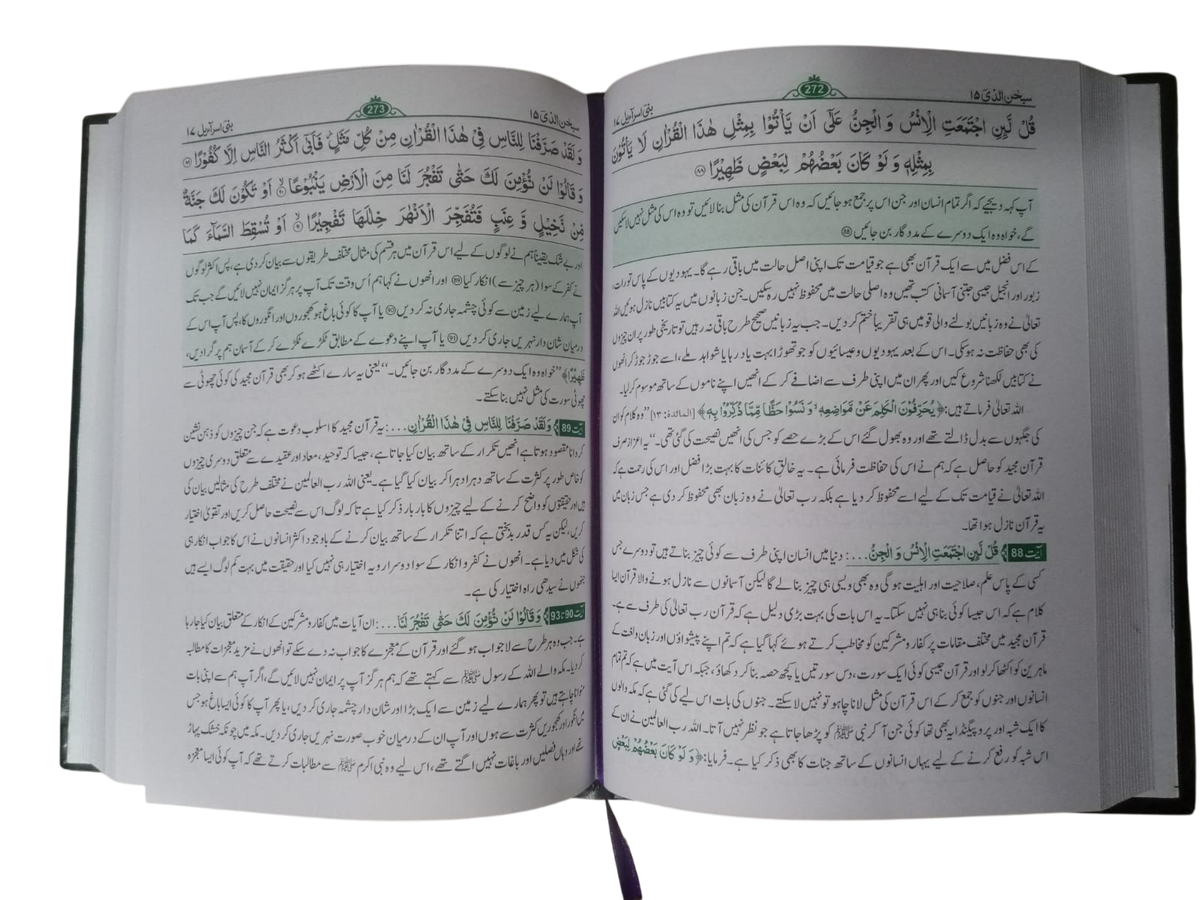 سبحٰن الذی ۱۵
272
بنی اسرآءیل ۱۷
قُلْ لَّىِٕنِ اجْتَمَعَتِ الْاِنْسُ وَ الْجِنُّ عَلٰۤى اَنْ یَّاْتُوْا بِمِثْلِ هٰذَا الْقُرْاٰنِ لَا یَاْتُوْنَ
بِمِثْلِهٖ وَ لَوْ كَانَ بَعْضُهُمْ لِبَعْضٍ ظَهِیْرًا ۸۸
آپ کہہ دیجیے کہ اگر تمام انسان اور جن اس پر جمع ہو جائیں کہ وہ اس قرآن کی مثل بنا لائیں تو وہ اس کی مثل نہیں لا سکیں
گے، خواہ وہ ایک دوسرے کے مددگار بن جائیں ۸۸
کے اس فضل میں سے ایک قرآن بھی ہے جو قیامت تک اپنی اصل حالت میں باقی رہے گا۔ یہودیوں کے پاس تورات،
زبور اور انجیل جیسی جتنی آسمانی کتب تھیں وہ اصلی حالت میں محفوظ نہیں رہ سکیں۔ جن زبانوں میں یہ کتابیں نازل ہوئیں اللہ
تعالیٰ نے وہ زبانیں بولنے والی قومیں ہی تقریباً ختم کر دیں۔ جب یہ زبانیں صحیح طرح باقی نہ رہیں تو تاریخی طور پر ان چیزوں
کی بھی حفاظت نہ ہو سکی۔ اس کے بعد یہودیوں و عیسائیوں کو جو تھوڑا بہت یاد رہا یا شواہد ملے، اسے جوڑ جوڑ کر انھوں
نے کتابیں لکھنا شروع کیں اور پھر ان میں اپنی طرف سے اضافے کر کے انھیں اپنے ناموں کے ساتھ موسوم کر لیا۔
اللہ تعالیٰ فرماتے ہیں: ﴿یُحَرِّفُوْنَ الْكَلِمَ عَنْ مَّوَاضِعِهٖ ۙ وَ نَسُوْا حَظًّا مِّمَّا ذُكِّرُوْا بِهٖ﴾ [المائدۃ: ۱۳] ”وہ کلام کو ان
کی جگہوں سے بدل ڈالتے تھے اور وہ بھول گئے اس کے بڑے حصے کو جس کی انھیں نصیحت کی گئی تھی۔“ یہ اعزاز صرف
قرآن مجید کو حاصل ہے کہ ہم نے اس کی حفاظت فرمائی ہے۔ یہ خالق کائنات کا بہت بڑا فضل اور اس کی رحمت ہے کہ
اللہ تعالیٰ نے قیامت تک کے لیے اسے محفوظ کر دیا ہے بلکہ رب تعالیٰ نے وہ زبان بھی محفوظ کر دی ہے جس زبان میں
یہ قرآن نازل ہوا تھا۔
آیت 88 قُلْ لَّىِٕنِ اجْتَمَعَتِ الْاِنْسُ وَ الْجِنُّ...: دنیا میں انسان اپنی طرف سے کوئی چیز بناتے ہیں تو دوسرے جس
کسی کے پاس علم، صلاحیت اور اہلیت ہو گی وہ بھی ویسی ہی چیز بنا لے گا لیکن آسمانوں سے نازل ہونے والا قرآن ایسا
کلام ہے کہ اس جیسا کوئی بنا ہی نہیں سکتا۔ یہ اس بات کی بہت بڑی دلیل ہے کہ قرآن رب تعالیٰ کی طرف سے ہے۔
قرآن مجید میں مختلف مقامات پر کفار و مشرکین کو مخاطب کرتے ہوئے کہا گیا ہے کہ تم اپنے پیشواؤں اور زبان دلغت کے
ماہرین کو اکٹھا کر لو اور قرآن جیسی کوئی ایک سورت، دس سورتیں یا کچھ حصہ بنا کر دکھاؤ، جبکہ اس آیت میں ہے کہ تم تمام
انسانوں اور جنوں کو جمع کر کے اس قرآن کی مثل لانا چاہو تو نہیں لا سکتے۔ جنوں کی بات اس لیے کی گئی ہے کہ مکہ والوں
کا ایک شبہ اور پروپیگنڈا یہ بھی تھا کوئی جن آ کر نبی ﷺ کو پڑھا جاتا ہے جو نظر نہیں آتا۔ اللہ رب العالمین نے ان کے
اس شبہ کو رفع کرنے کے لیے یہاں انسانوں کے ساتھ جنات کا بھی ذکر کیا ہے۔ فرمایا: ﴿وَ لَوْ كَانَ بَعْضُهُمْ لِبَعْضٍ
سبحٰن الذی ۱۵
273
بنی اسرآءیل ۱۷
وَ لَقَدْ صَرَّفْنَا لِلنَّاسِ فِیْ هٰذَا الْقُرْاٰنِ مِنْ كُلِّ مَثَلٍ ؗ فَاَبٰۤى اَكْثَرُ النَّاسِ اِلَّا كُفُوْرًا ۸۹
وَ قَالُوْا لَنْ نُّؤْمِنَ لَكَ حَتّٰى تَفْجُرَ لَنَا مِنَ الْاَرْضِ یَنْۢبُوْعًا ۙ ۹۰ اَوْ تَكُوْنَ لَكَ جَنَّةٌ
مِّنْ نَّخِیْلٍ وَّ عِنَبٍ فَتُفَجِّرَ الْاَنْهٰرَ خِلٰلَهَا تَفْجِیْرًا ۙ ۹۱ اَوْ تُسْقِطَ السَّمَآءَ كَمَا
اور بے شک یقیناً ہم نے لوگوں کے لیے اس قرآن میں ہر قسم کی مثال مختلف طریقوں سے بیان کر دی ہے، پس اکثر لوگوں
نے کفر کے سوا (ہر چیز سے) انکار کیا ۸۹ اور انھوں نے کہا ہم اُس وقت تک آپ پر ہرگز ایمان نہیں لائیں گے جب تک
آپ ہمارے لیے زمین سے کوئی چشمہ جاری نہ کر دیں ۹۰ یا آپ کا کوئی باغ ہو کھجوروں اور انگوروں کا، پس آپ اس کے
درمیان شان دار نہریں جاری کر دیں ۹۱ یا آپ اپنے دعوے کے مطابق ٹکڑے ٹکڑے کر کے آسمان ہم پر گرا دیں،
ظَهِیْرًا﴾ ”خواہ وہ ایک دوسرے کے مددگار بن جائیں۔“ یعنی یہ سارے اکٹھے ہو کر بھی قرآن مجید کی کوئی چھوٹی سے
چھوٹی سورت کی مثل نہیں بنا سکتے۔
آیت 89 وَ لَقَدْ صَرَّفْنَا لِلنَّاسِ فِیْ هٰذَا الْقُرْاٰنِ...: یہ قرآن مجید کا اسلوب دعوت ہے کہ جن چیزوں کو ذہن نشین
کروانا مقصود ہوتا ہے انھیں تکرار کے ساتھ بیان کیا جاتا ہے، جیسا کہ توحید، معاد اور عقیدے سے متعلق دوسری چیزوں
کو خاص طور پر کثرت کے ساتھ دہرا دہرا کر بیان کیا گیا ہے۔ یعنی اللہ رب العالمین نے مختلف طرح کی مثالیں بیان کی
ہیں اور حقیقتوں کو واضح کرنے کے لیے چیزوں کا بار بار ذکر کیا ہے تاکہ لوگ اس سے نصیحت حاصل کریں اور تقویٰ اختیار
کریں، لیکن یہ کس قدر بدبختی ہے کہ اتنا تکرار کے ساتھ بیان کرنے کے باوجود اکثر انسانوں نے اس کا جواب انکار ہی
کی شکل میں دیا ہے۔ انھوں نے کفر و انکار کے سوا دوسرا رویہ اختیار ہی نہیں کیا اور حقیقت میں بہت کم لوگ ایسے ہیں
جنھوں نے سیدھی راہ اختیار کی ہے۔
آیت 90-93 وَ قَالُوْا لَنْ نُّؤْمِنَ لَكَ حَتّٰى تَفْجُرَ لَنَا...: ان آیات میں کفار و مشرکین کے انکار کے متعلق بیان کیا جا رہا
ہے۔ جب وہ ہر طرح سے لاجواب ہو گئے اور قرآن کے معجزے کا جواب نہ دے سکے تو انھوں نے مزید معجزات کا مطالبہ
کر دیا۔ مکہ والے اللہ کے رسول ﷺ سے کہتے تھے کہ ہم ہرگز آپ پر ایمان نہیں لائیں گے، اگر آپ ہم سے اپنی بات
منوانا چاہتے ہیں تو پھر ہمارے لیے زمین سے ایک بڑا اور شان دار چشمہ جاری کر دیں، یا پھر آپ کا کوئی ایسا باغ ہو جس
میں انگور اور کھجوریں کثرت سے ہوں اور آپ ان کے درمیان خوب صورت نہریں جاری کر دیں۔ مکہ میں چونکہ خشک پہاڑ
تھے اور وہاں فصلیں اور باغات نہیں اگتے تھے، اس لیے وہ نبی اکرم ﷺ سے مطالبات کرتے تھے کہ آپ کوئی ایسا معجزہ